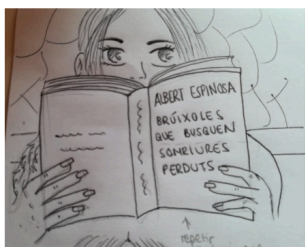 ALBERT ESPINOSA
BRÚIXOLES
QUE BUSQUEN
SOMRIURES
PERDUTS
repetir